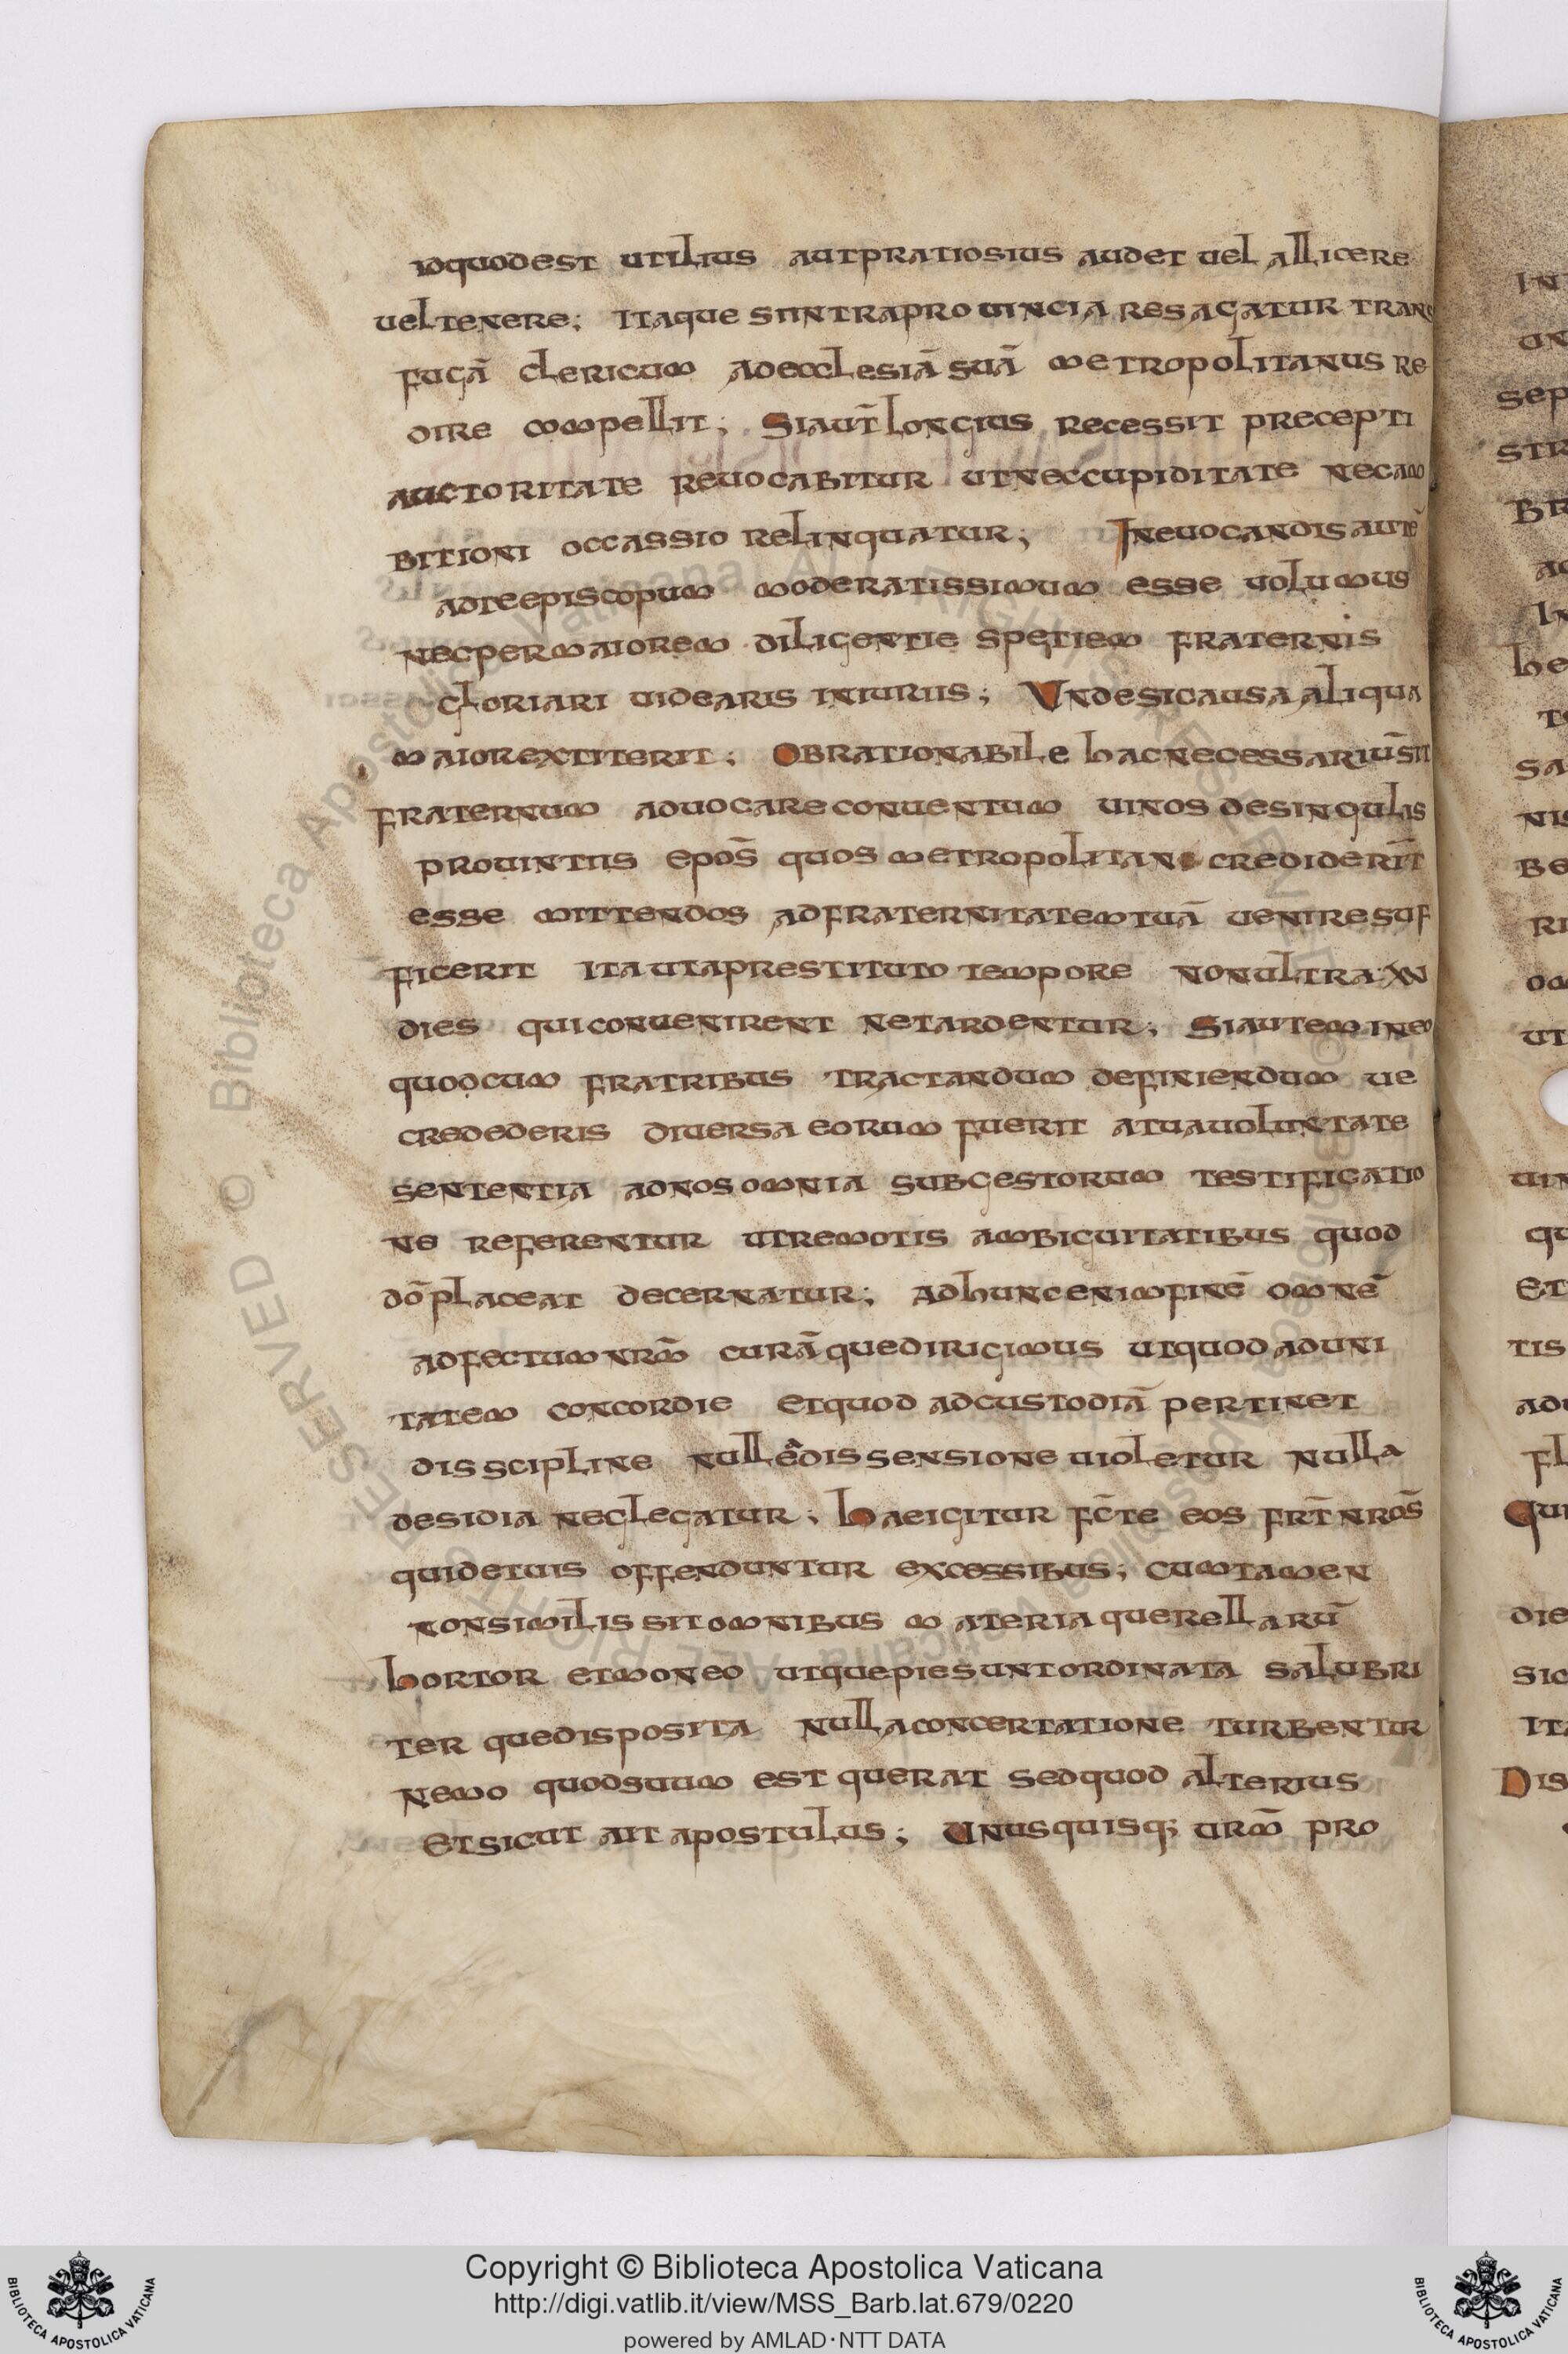 idquodest utilius autpratiosius audet uel allicere
ueltenere; itaque siintraprouincia resagatur trans
fugā clericum adecclesiā suā metropolitanus re
dire compellit; Siaut̄ longius recessit precepti
auctoritate reuocabitur utneccupiditate necam
bitioni occassio relinquatur; Ineuocandis autē
adteepiscopum moderatissimum esse uolumus
necpermaiorem diligentie spetiem fraternis
gloriari uidearis iniuriis; Undesicausa aliqua
maiorextiterit; Obrationabile hacnecessariūsit
fraternum aduocare conuentum uinos desingulis
prouintiis epos̄ quos metropolitani crediderīt
esse mittendos adfraternitatemtuā uenire suf
ficerit ita utaprestituto tempore nonultra xv
dies quiconuenirent netardentur; Siautemineo
quodcum fratribus tractandum definiendum ue
credederis diuersa eorum fuerit atuauoluntate
sententia adnos omnia subgestorum testificatio
ne referentur utremotis ambiguitatibus quod
dō placeat decernatur; adhuncenimfinē omnē
adfectumnrm̄ curāquedirigimus utquod aduni
tatem concordie etquod adcustodiā pertinet
disscipline nullēdissensione uioletur nulla
desidia neglegatur; haeigitur fc̄te eos frt̄ nros̄
quidetuis offenduntur excessibus; cumtamen
nonsimilis sit omnibus materia querellarū
hortor etmoneo utquepiesuntordinata salubri
ter quedisposita nullaconcertatione turbentur
nemo quodsuum est querat sedquod alterius
etsicut ait apostulus; Unusquisq; urm̄ pro
Copyright © Biblioteca Apostolica Vaticana
http://digi.vatlib.it/view/MSS_Barb.lat.679/0220
powered by AMLAD·NTT DATA